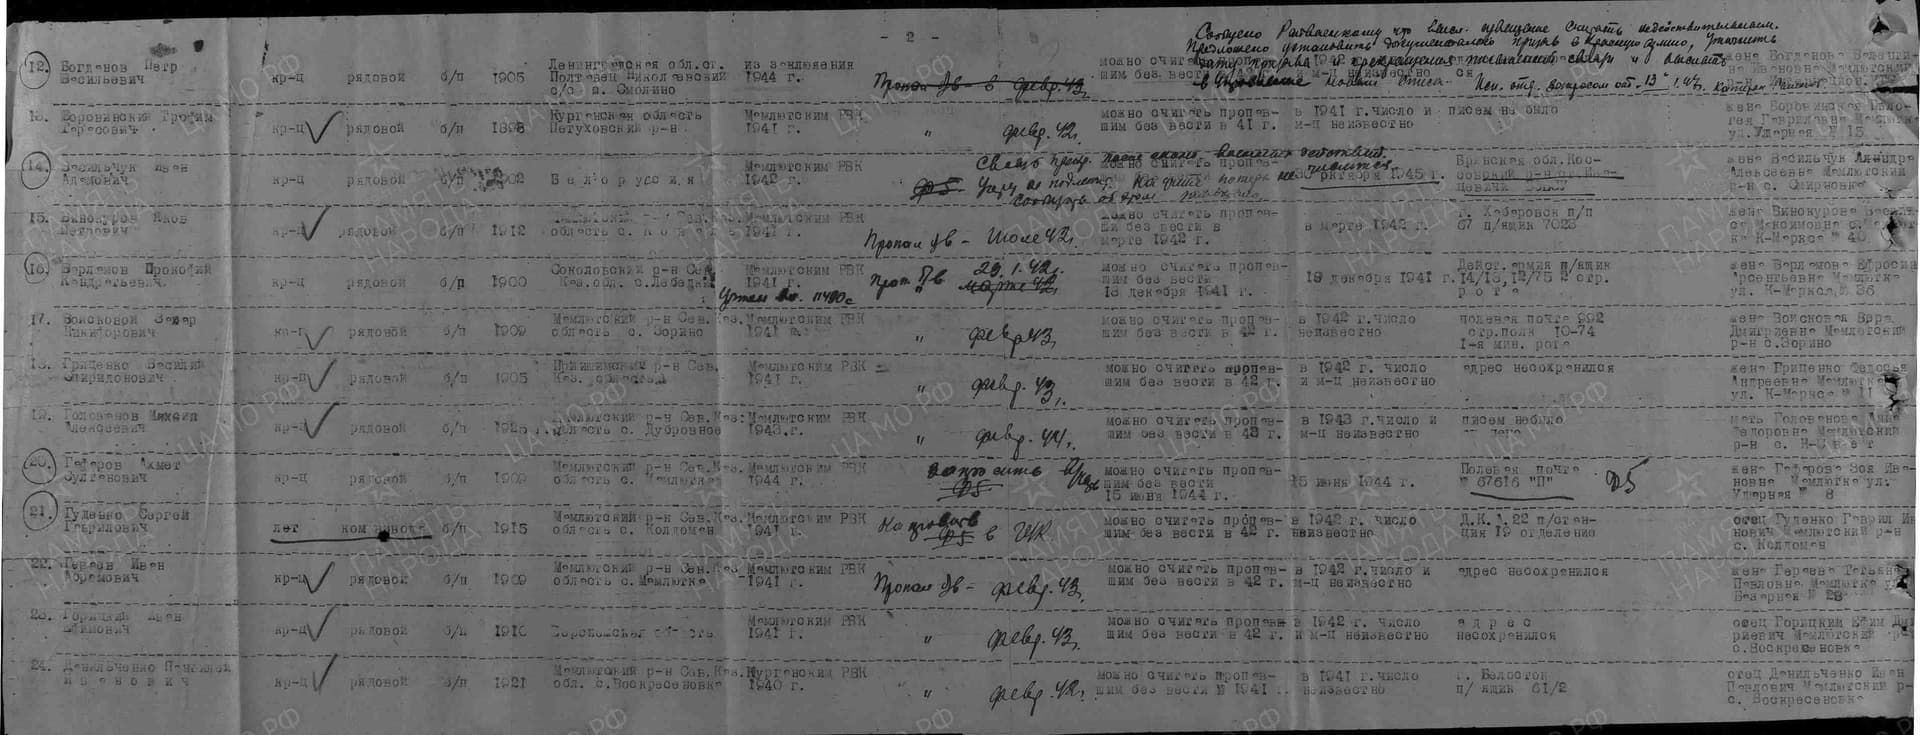 - 2 -
Сообщено Райвоенкому что высл. извещение считать недействительным.
Предложено установить документально призыв в Красную армию, уточнить
дату призыва и прекращения письменной связи и выслать
12. Богданов Петр
Васильевич
кр-ц рядовой б/п 1905
Ленинградская област.
Полтавец Николаевский
с/с д. Смолино
из заключения
1944 г.
Пропал б/в - в февр. 43.
жена Богданова Валенти-
на Ивановна Мамлютский
13. Боровинский Трофим
Тарасович
кр-ц рядовой б/п 1898
Курганская область
Петуховский р-н
Мамлютским РВК
1941 г.
" февр. 42.
можно считать пропав-
шим без вести в 41 г.
в 1941 г. число и
м-ц неизвестно
писем не было
жена Боровинская
ул. Ударная № 15
14. Васильчук Иван
Адамович
кр-ц рядовой б/п 1902
Белоруссия
Мамлютским РВК
1942 г.
можно считать пропав-
30 октября 1945 г.
Брянская обл. Кос-
жена Васильчук
Алексеевна Мамлютский
р-н с. Смирновка
15. Винокуров Яков
Петрович
кр-ц рядовой б/п 1912
область с.
Мамлютским РВК
1941 г.
Пропал б/в - Июле 42.
можно считать пропав-
ши без вести в
марте 1942 г.
в марте 1942 г.
г. Хабаровск п/п
67 п/ящик 7023
жена Винокурова
Максимовна
К-Маркса № 40
16. Варламов Прокофий
Кондратьевич
кр-ц рядовой б/п 1900
Соколовский р-н Сев.
Каз. обл. с. Лебедки
Мамлютским РВК
1941 г.
Проп. б/в 29.1.42.
марте 42.
можно считать пропав-
шим без вести
13 декабря 1941 г.
13 декабря 1941 г.
Дейст. армия п/ящик
14/13, 12/75 2 стр.
рота
жена Варламова Ефросин
Арсентьевна Мамлютка
ул. К-Маркса № 36
17. Войсковой Захар
Никифорович
кр-ц рядовой б/п 1909
Мамлютский р-н Сев. Каз.
область с. Зорино
Мамлютским РВК
1941 г.
" февр. 43.
можно считать пропав-
шим без вести в 42 г.
в 1942 г. число
неизвестно
полевая почта 992
стр. полк 10-74
1-я мин. рота
жена Войсковая Вера
Дмитриевна Мамлютский
р-н с. Зорино
18. Гриценко Василий
Спиридонович
кр-ц рядовой б/п 1905
Приишимский р-н Сев.
Каз. область
Мамлютским РВК
1941 г.
" февр. 43.
можно считать пропав-
шим без вести в 42 г.
в 1942 г. число
и м-ц неизвестно
адрес несохранился
жена Гриценко Федосья
Андреевна Мамлютка
ул. К-Маркса № 11
19. Голованов Михаил
Алексеевич
кр-ц рядовой б/п 1925
Мамлютский р-н Сев. Каз.
область с. Дубровное
Мамлютским РВК
1943 г.
" февр. 44.
можно считать пропав-
шим без вести в 43 г.
в 1943 г. число и
м-ц неизвестно
писем небыло
мать Голованова Анна
Федоровна Мамлютский
р-н
20. Гафаров Ахмет
Султанович
кр-ц рядовой б/п 1909
Мамлютский р-н Сев. Каз.
область с. Мамлютка
Мамлютским РВК
1944 г.
запросить
Ф5
можно считать пропав-
шим без вести
15 июня 1944 г.
15 июня 1944 г.
Полевая почта
№ 67616 "П"
Ф5
жена Гафарова Зоя Ива-
новна Мамлютка ул.
Ударная № 8
21. Гуденко Сергей
Гаврилович
лет ком взвода б/п 1915
Мамлютский р-н Сев. Каз.
область с. Колдоман
Мамлютским РВК
1941 г.
Направить
Ф5 в ГУК
можно считать пропав-
шим без вести в 42 г.
в 1942 г. число
неизвестно
Д.К. А 22 п/стан-
ция 19 отделение
отец Гуденко Гаврил Ив
нович Мамлютский р-н
с. Колдоман
22. Гереев Иван
Абрамович
кр-ц рядовой б/п 1909
Мамлютский р-н Сев. Каз.
область с. Мамлютка
Мамлютским РВК
1941 г.
Пропал б/в - февр. 43.
можно считать пропав-
шим без вести в 42 г.
в 1942 г. число и
м-ц неизвестно
адрес несохранился
жена Гереева Татьяна
Павловна Мамлютка ул
Базарная № 28
23. Горицкий Иван
Ефимович
кр-ц рядовой б/п 1916
Воронежская область
Мамлютским РВК
1941 г.
" февр. 43.
можно считать пропав-
шим без вести в 42 г.
в 1942 г. число
и м-ц неизвестно
адрес
несохранился
отец Горицкий Ефим Дми
риевич Мамлютский р-н
с. Воскресеновка
24. Данильченко Пантилей
Иванович
кр-ц рядовой б/п 1921
Мамлютский р-н Сев. Каз.
обл. с. Воскресеновка
Курганским РВК
1940 г.
" февр. 42.
можно считать пропав-
шим без вести в 1941 г.
в 1941 г. число
неизвестно
г. Белосток
п/ ящик 61/2
отец Данильченко Иван
Павлович Мамлютский р-
с. Воскресеновка